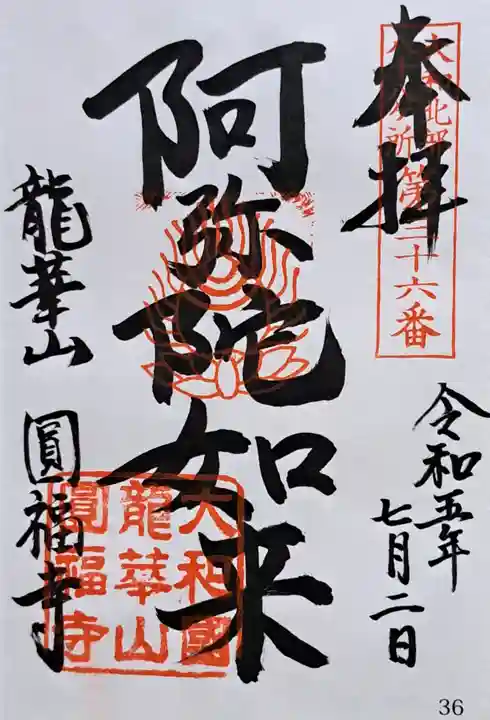 奉拝
大和北部
八十八ヶ所第三十六番
令和五年
七月二日
阿弥陀如来
龍華山 圓福寺
大和國
龍華山
圓福寺
36